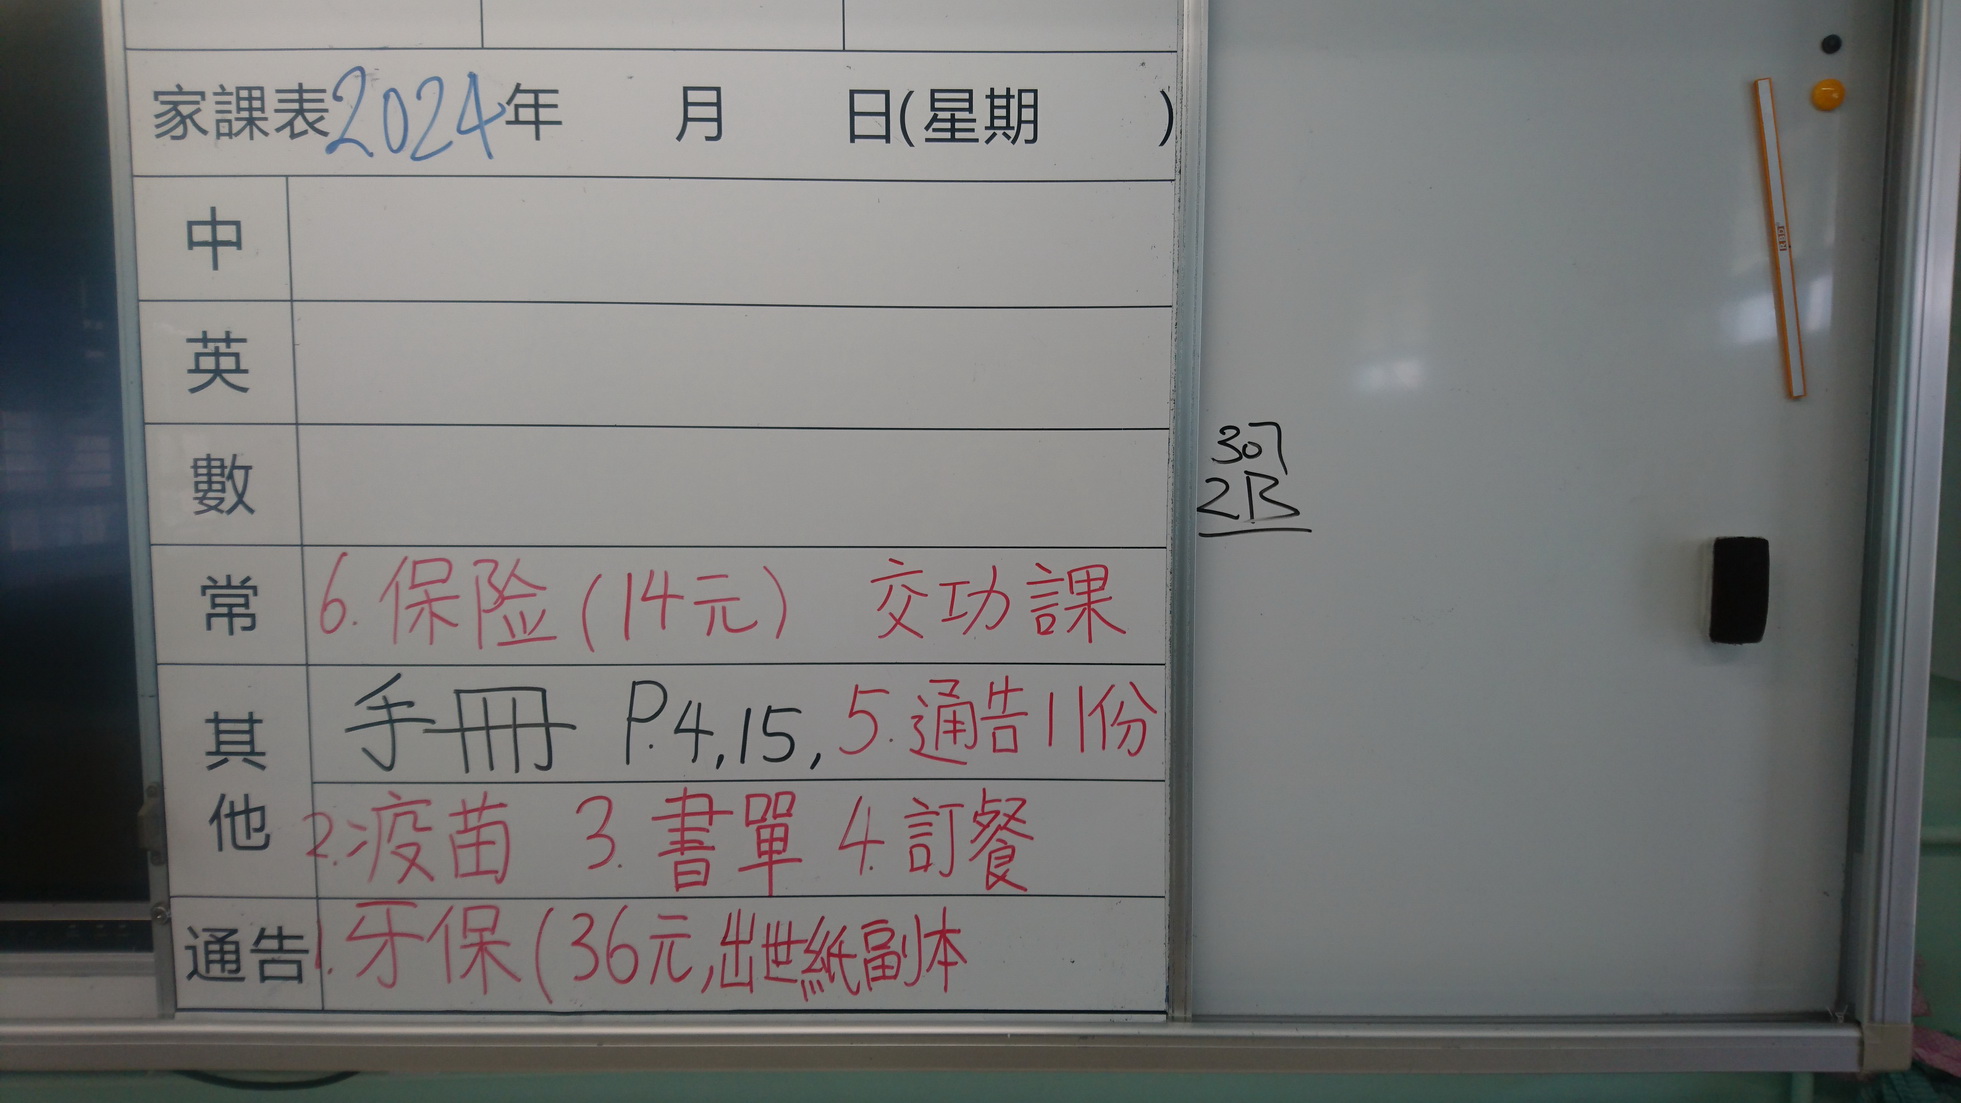 家課表2024年 月 日(星期 )
中
英
數
常 6.保险(14元) 交功課
其他
手冊 P.4,15, 5.通告11份
2.疫苗 3.書單 4.訂餐
通告 1.牙保(36元,出世紙副本
307
2B